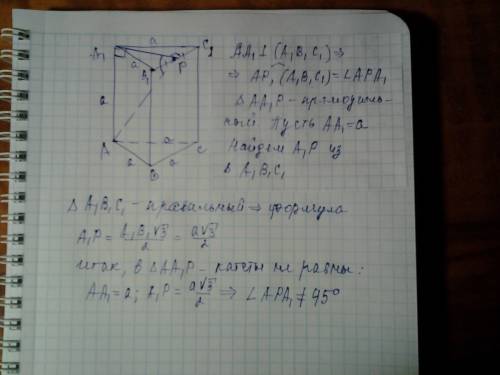 a
A₁
C₁
a
B₁
P
a
A
a
C
a
a
B
AA₁ ⊥ (A₁B₁C₁) ⇒
⇒ AP, (A₁B₁C₁) = ∠APA₁
△ AA₁P – прямоуголь-
ный. Пусть AA₁ = a
Найдем A₁P из
△ A₁B₁C₁
△ A₁B₁C₁ – правильный ⇒ формула
A₁P = A₁B₁√3/2 = a√3/2
итак, в △AA₁P – катеты не равны:
AA₁ = a; A₁P = a√3/2 ⇒ ∠APA₁ ≠ 45°